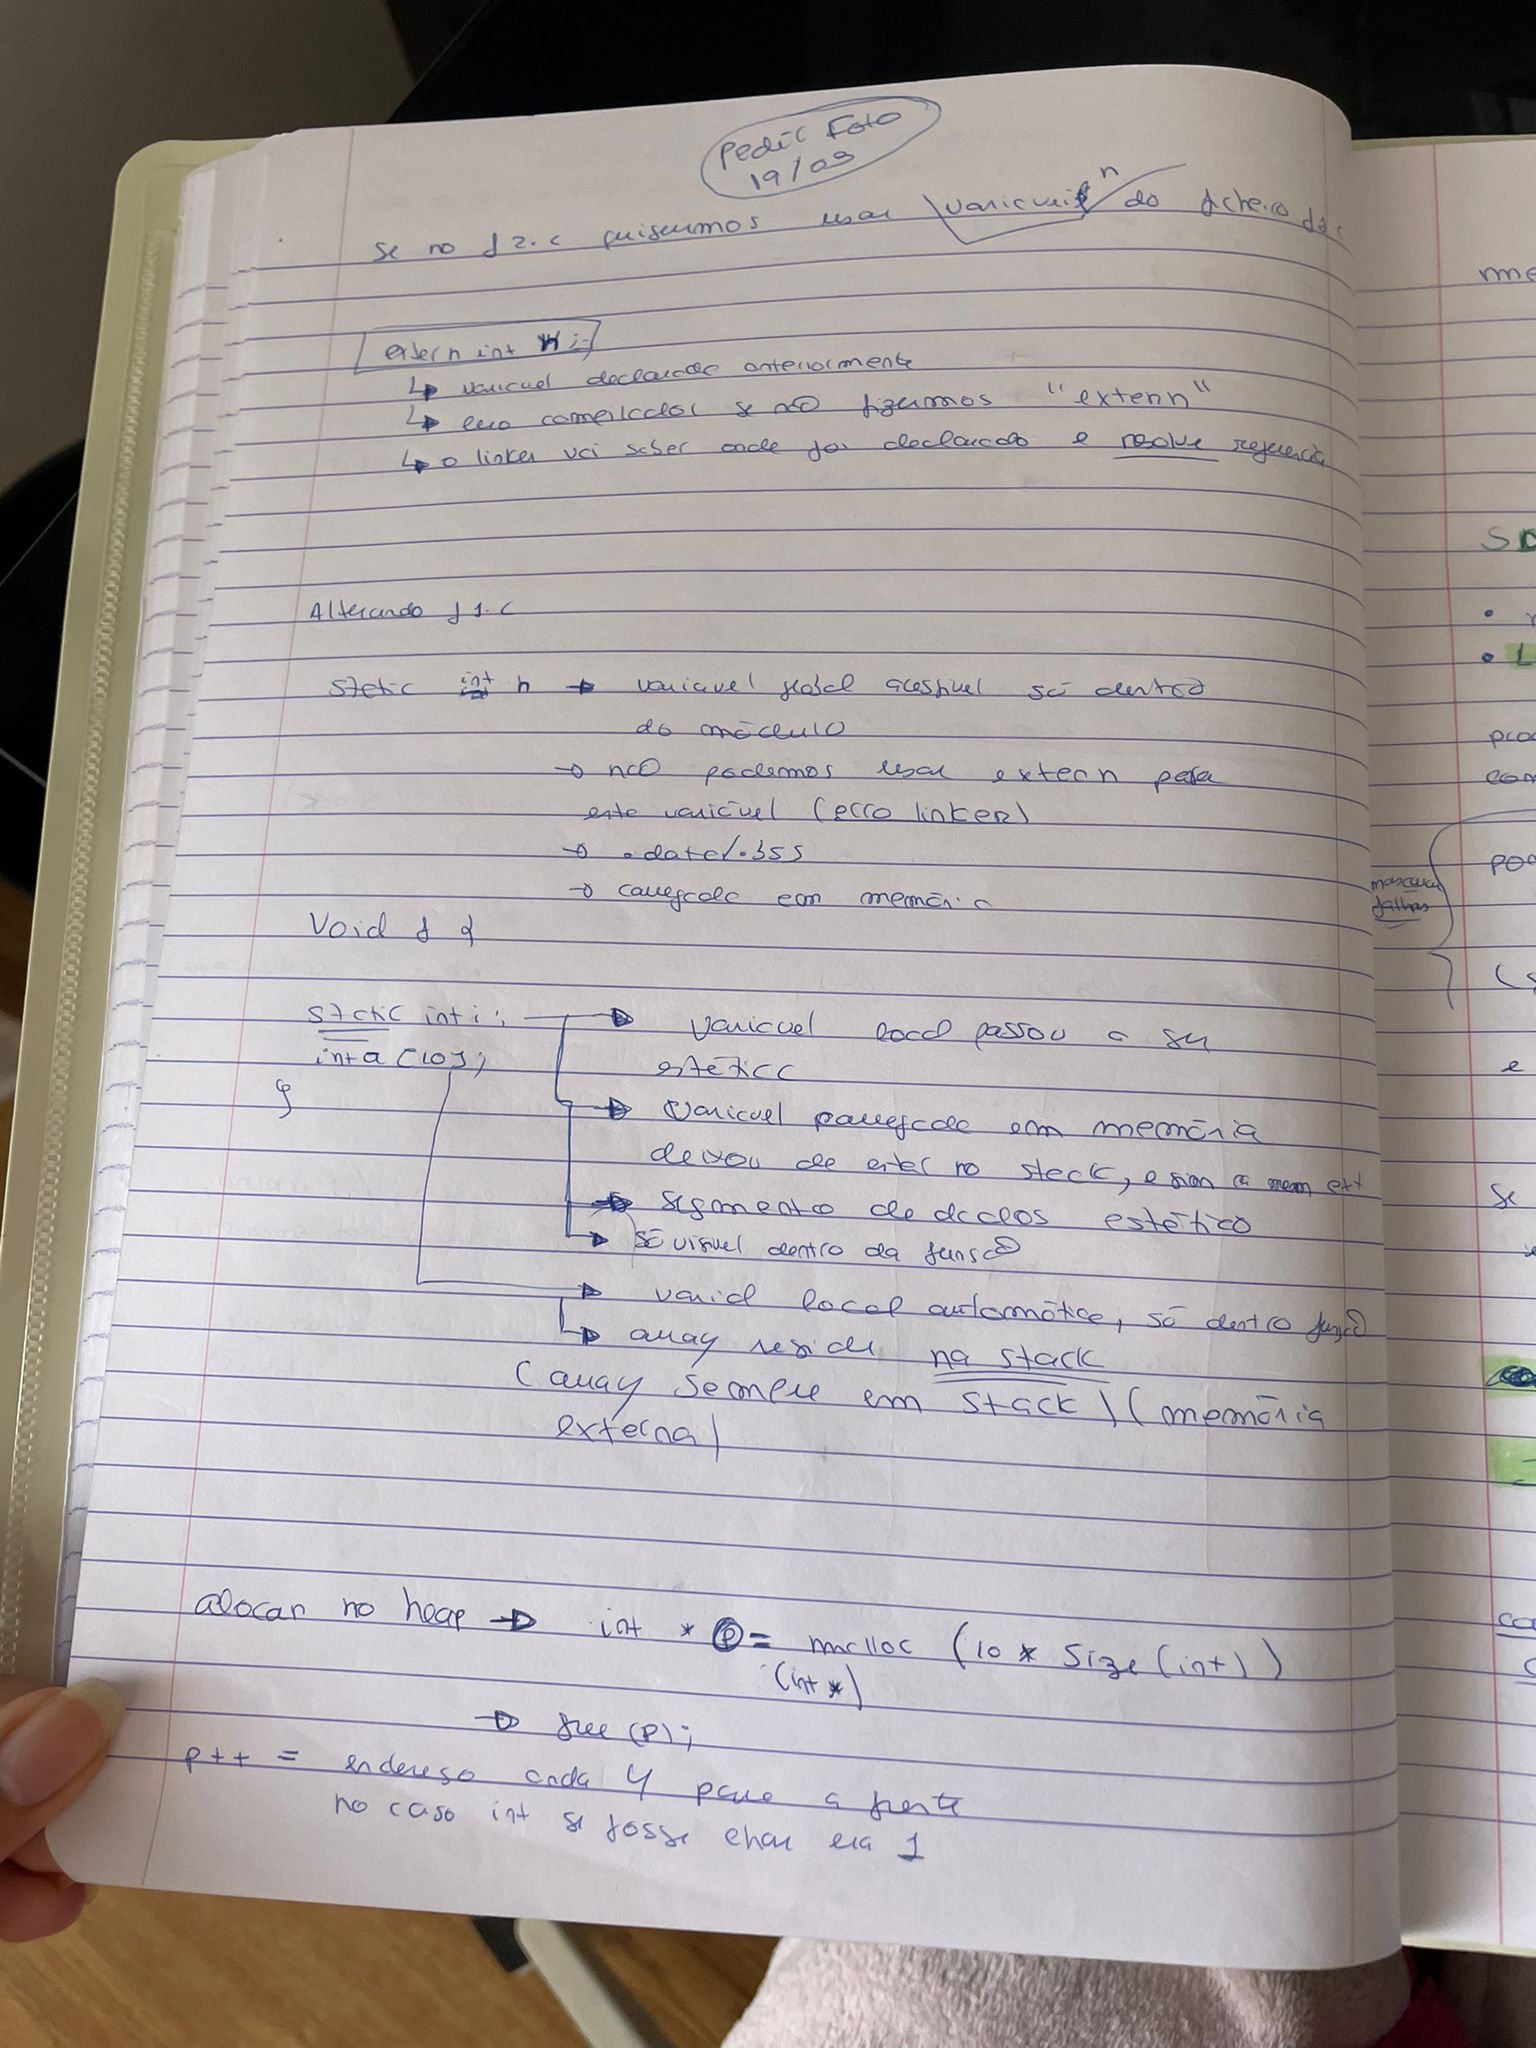 Pedir Foto
19/03
Se no f2.c quisermos usar variavel n do ficheiro f1.c
extern int n;
↳ variavel declarada anteriormente
↳ erro compilador se não fizermos "extern"
↳ o linker vai saber onde foi declarado e resolve referencia
Alterando f1.c
static int n → variavel global acessivel só dentro
do módulo
→ não podemos usar extern para
esta variável (erro linker)
→ .data/.bss
→ carregada em memória
Void f {
static int i; → variavel local passou a ser
int a [10]; estática
}
→ variavel carregada em memória
deixou de estar no stack, e sim a mem ext
→ segmento de dados estático
→ só visivel dentro da função
→ variavl local automática, só dentro função
↳ array reside na stack
(array sempre em stack) (memória
externa)
alocar no heap → int * p = malloc (10 * Size (int))
(int *)
→ free (p);
p++ = endereso anda 4 para a frente
no caso int se fosse char era 1
mascarar
falhas
me
SD
L
e
se